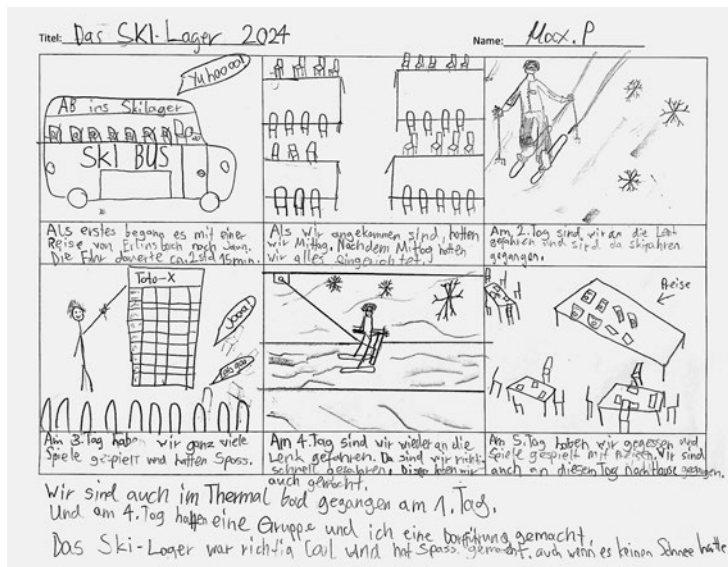 Titel: Das SKI-Lager 2024
Name: Max.P
Yuhoooo!
AB ins Skilager
SKI BUS
Als erstes begang es mit einer
Reise von Erlinsbach nach Jaun.
Die Fahr dauerte ca. 2std 15min.
Als wir angekommen sind, hatten
wir Mittag. Nachdem Mittag hatten
wir alles eingerichtet.
Am 2.Tag sind wir an die Lenk
gefahren und sind da skifahren
gegangen.
Toto-X
Jooo!
Am 3.Tag haben wir ganz viele
Spiele gespielt und hatten Spass.
Am 4.Tag sind wir wieder an die
Lenk gefahren. Da sind wir
schnell gefahren. haben wir
auch gemacht.
Preise
Am 5.Tag haben wir gegessen und
Spiele gespielt mit Preisen. Wir sind
auch an diesem Tag nach Hause gegangen.
Wir sind auch im Thermal bad gegangen am 1.Tag.
Und am 4.Tag haben eine Gruppe und ich eine gemacht.
Das Ski-Lager war richtig Cool und hat Spass gemacht, auch wenn es keinen Schnee hatte